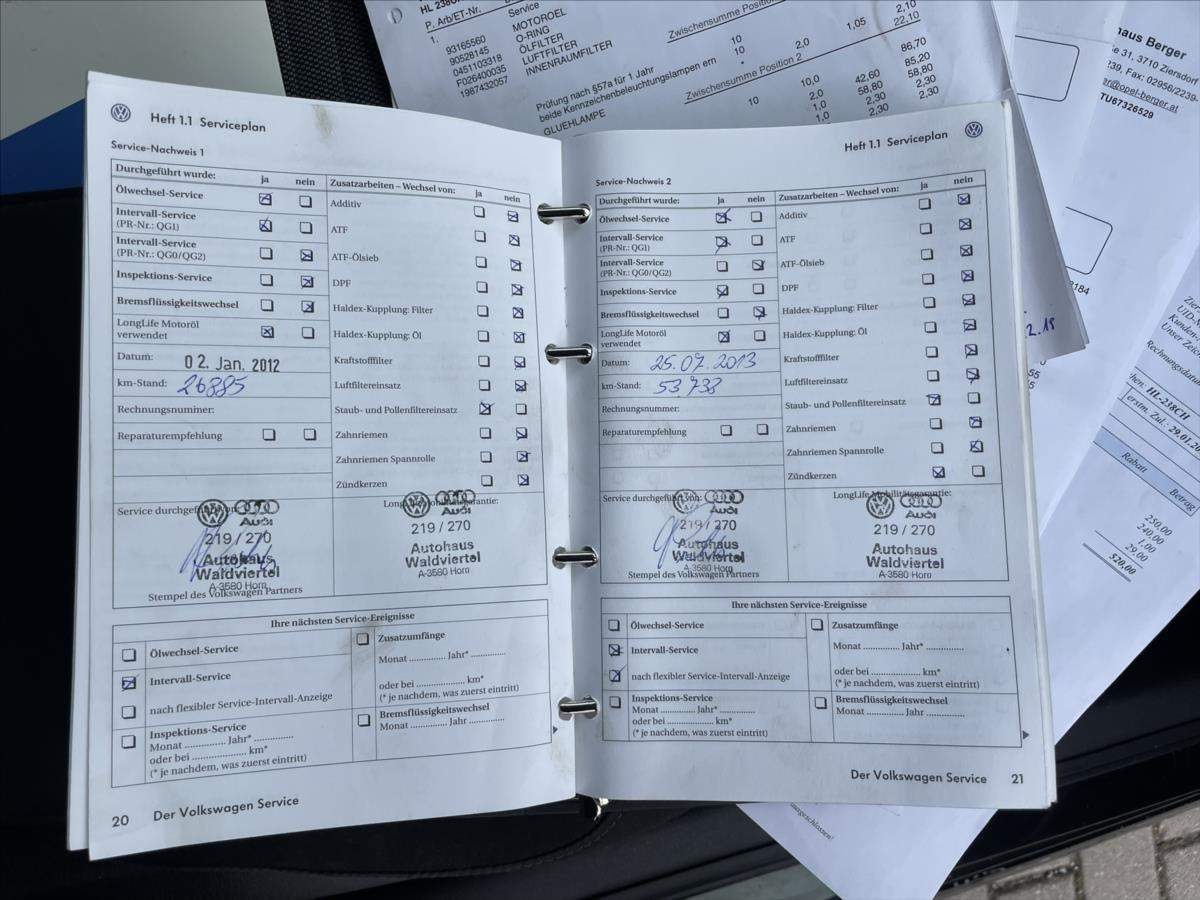 HL 238C
P. Arb/ET-Nr.
Service
1.
93165560 MOTOROEL
90528145 O-RING
0451103318 ÖLFILTER
F026400035 LUFTFILTER
1987432057 INNENRAUMFILTER
Zwischensumme Position
2,10
1,05 22,10
Prüfung nach §57a für 1 Jahr 10 2,0 86,70
beide Kennzeichenbeleuchtungslampen ern *
Zwischensumme Position 2 85,20
GLUEHLAMPE
10 10,0 42,60 58,80
2,0 58,80 2,30
1,0 2,30 2,30
1,0 2,30
haus Berger
e 31, 3710 Ziersdorf
239, Fax: 02956/2239-
er@opel-berger.at
TU67326529
Heft 1.1 Serviceplan
Service-Nachweis 1
Durchgeführt wurde: ja nein
Ölwechsel-Service
Intervall-Service
(PR-Nr.: QG1)
Intervall-Service
(PR-Nr.: QG0/QG2)
Inspektions-Service
Bremsflüssigkeitswechsel
LongLife Motoröl
verwendet
Datum: 02. Jan. 2012
km-Stand: 26885
Rechnungsnummer:
Reparaturempfehlung
Zusatzarbeiten – Wechsel von: ja nein
Additiv
ATF
ATF-Ölsieb
DPF
Haldex-Kupplung: Filter
Haldex-Kupplung: Öl
Kraftstofffilter
Luftfiltereinsatz
Staub- und Pollenfiltereinsatz
Zahnriemen
Zahnriemen Spannrolle
Zündkerzen
Service durchgeführt von:
Audi
219 / 270
Autohaus
Waldviertel
A-3580 Horn
Stempel des Volkswagen Partners
Audi
219 / 270
Autohaus
Waldviertel
A-3580 Horn
Ihre nächsten Service-Ereignisse
Ölwechsel-Service
Intervall-Service
nach flexibler Service-Intervall-Anzeige
Inspektions-Service
Monat .............. Jahr* ..............
oder bei .................. km*
(* je nachdem, was zuerst eintritt)
Zusatzumfänge
Monat ............. Jahr* .............
oder bei .................. km*
(* je nachdem, was zuerst eintritt)
Bremsflüssigkeitswechsel
Monat ............. Jahr .............
20 Der Volkswagen Service
Heft 1.1 Serviceplan
Service-Nachweis 2
Durchgeführt wurde: ja nein
Ölwechsel-Service
Intervall-Service
(PR-Nr.: QG1)
Intervall-Service
(PR-Nr.: QG0/QG2)
Inspektions-Service
Bremsflüssigkeitswechsel
LongLife Motoröl
verwendet
Datum: 25.07.2013
km-Stand: 53.738
Rechnungsnummer:
Reparaturempfehlung
Zusatzarbeiten – Wechsel von: ja nein
Additiv
ATF
ATF-Ölsieb
DPF
Haldex-Kupplung: Filter
Haldex-Kupplung: Öl
Kraftstofffilter
Luftfiltereinsatz
Staub- und Pollenfiltereinsatz
Zahnriemen
Zahnriemen Spannrolle
Zündkerzen
Service durchgeführt von:
Audi
219 / 270
Autohaus
Waldviertel
A-3580 Horn
Stempel des Volkswagen Partners
LongLife Mobilitätsgarantie:
Audi
219 / 270
Autohaus
Waldviertel
A-3580 Horn
Ihre nächsten Service-Ereignisse
Ölwechsel-Service
Intervall-Service
nach flexibler Service-Intervall-Anzeige
Inspektions-Service
Monat .............. Jahr* ..............
oder bei .................. km*
(* je nachdem, was zuerst eintritt)
Zusatzumfänge
Monat ............. Jahr* .............
oder bei .................. km*
(* je nachdem, was zuerst eintritt)
Bremsflüssigkeitswechsel
Monat ............. Jahr .............
Der Volkswagen Service 21
3184
2.18
Rechnungsdatum
hen. HL-238CH
erstm. Zul.: 29.01.20
Rabatt Betrag
250,00
240,00
1,00
29,00
520,00